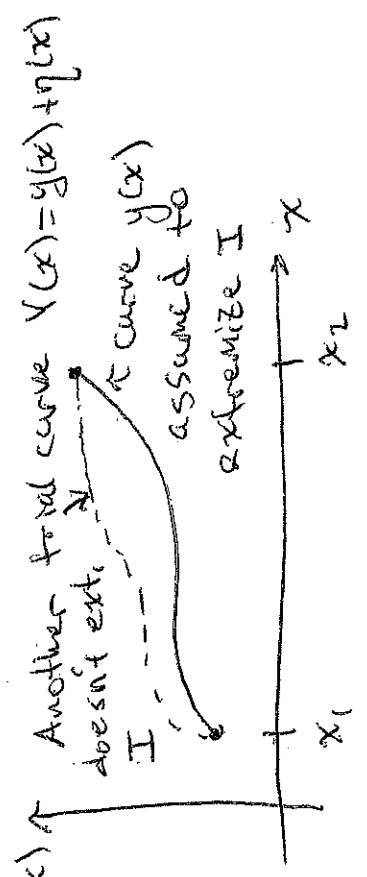 x)
Another trial curve Y(x)=y(x)+η(x)
doesn't ext.
I
curve y(x)
assumed to
extremize I
x
x₁
x₂